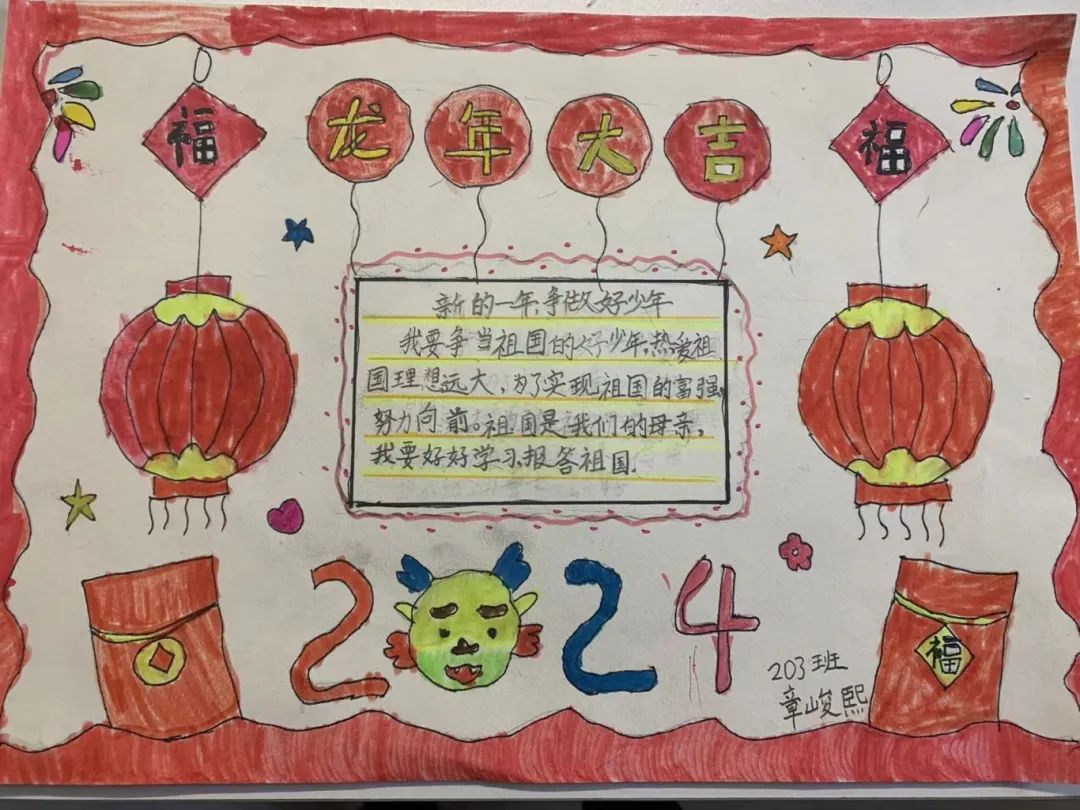 福
龙年大吉
福
新的一年,争做好少年
我要争当祖国的好少年,热爱祖
国理想远大,为了实现祖国的富强,
努力向前。祖国是我们的母亲,
我要好好学习,报答祖国.
2024
福
203班
章峻熙